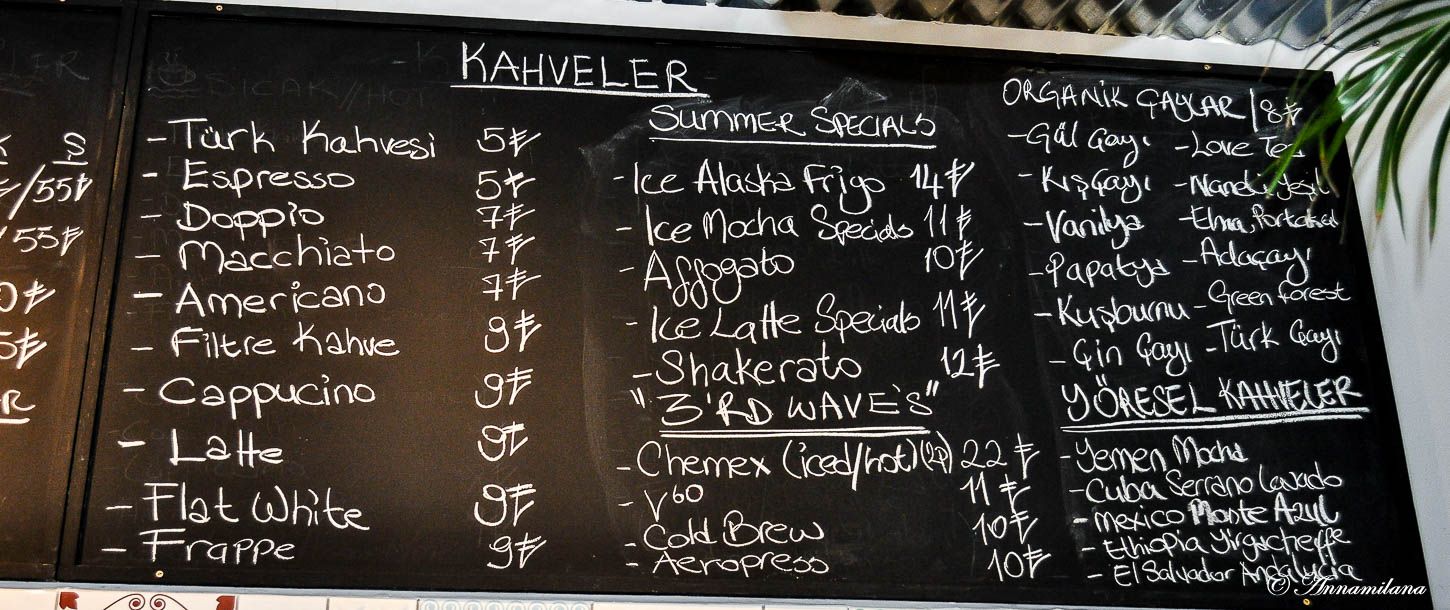 Ş
/55₺
/55₺
0₺
5₺
KAHVELER
- Türk Kahvesi 5₺
- Espresso 5₺
- Doppio 7₺
- Macchiato 7₺
- Americano 7₺
- Filtre Kahve 9₺
- Cappucino 9₺
- Latte 9₺
- Flat White 9₺
- Frappe 9₺
SUMMER SPECIALS
- Ice Alaska Frigo 14₺
- Ice Mocha Specials 11₺
- Affogato 10₺
- Ice Latte Specials 11₺
- Shakerato 12₺
"3'RD WAVE'S"
- Chemex (iced/hot) (2P) 22₺
- V60 11₺
- Cold Brew 10₺
- Aeropress 10₺
ORGANİK ÇAYLAR / 8₺
- Gül Çayı - Love Tea
- Kış Çayı - Naneli Yeşil
- Vanilya - Elma, Portakal
- Papatya - Adaçayı
- Kuşburnu - Green Forest
- Çin Çayı - Türk Çayı
YÖRESEL KAHVELER
- Yemen Mocha
- Cuba Serrano Lavado
- Mexico Monte Azul
- Ethiopia Yirgacheffe
- El Salvador Andalucia
© Annamilana